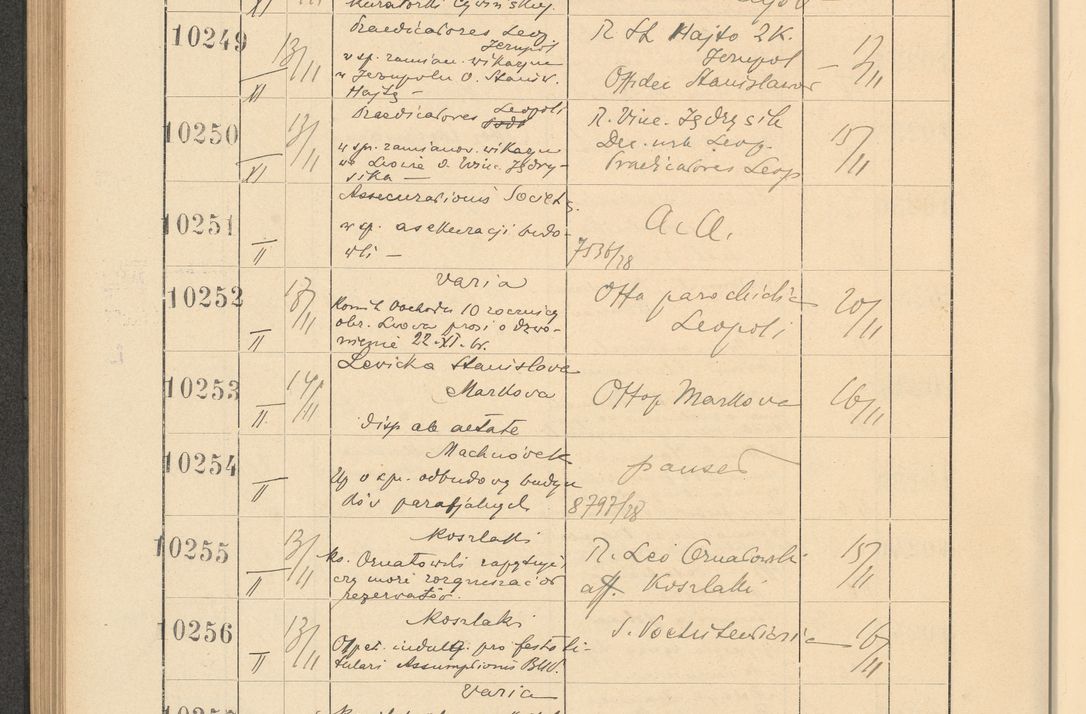 XI
10249 13/11 XI
Praedicatores Leop.
Jezupol
w sp. zamian. wikarym
w Jezupolu O. Stanisł.
Hajtę —
R. St. Hajto 2 K.
Jezupol
Off. dec. Stanislawow — 17/11
10250 13/11 XI
Praedicatores Leopoli
w sp. zamianow. wikarym
we Lwowie O. Winc. Jędry-
sika —
R. Vinc. Jędrysik
Dec. urb. Leop.
Praedicatores Leop. 15/11
10251 II
Assecurationis Societ.
w sp. asekuracji budo-
wli —
A. A.
7536/28
10252 12/11 II
Varia
Komit. Obchodu 10 rocznicy
obr. Lwowa prosi o dzwo-
nienie 22.XI. br.
Offa parochialia
Leopoli 20/11
10253 14/11 II
Levicka Stanislava
Markova
disp ab aetate
Offo Markova 16/11
10254 II
Machnówek
Up. o sp. odbudowy budyn
ków parafjalnych
pauset
8797/28
10255 13/11 II
Koszlaki
ks. Ornatowski zapytuje
czy może zorganizować
rezerwatów.
R. Leo Ornatowski
aff. Koszlaki 15/11
10256 13/11 II
Koszlaki
O. pet. indult. pro festo ti-
tulari Assumptionis BMV.
16/11
Varia